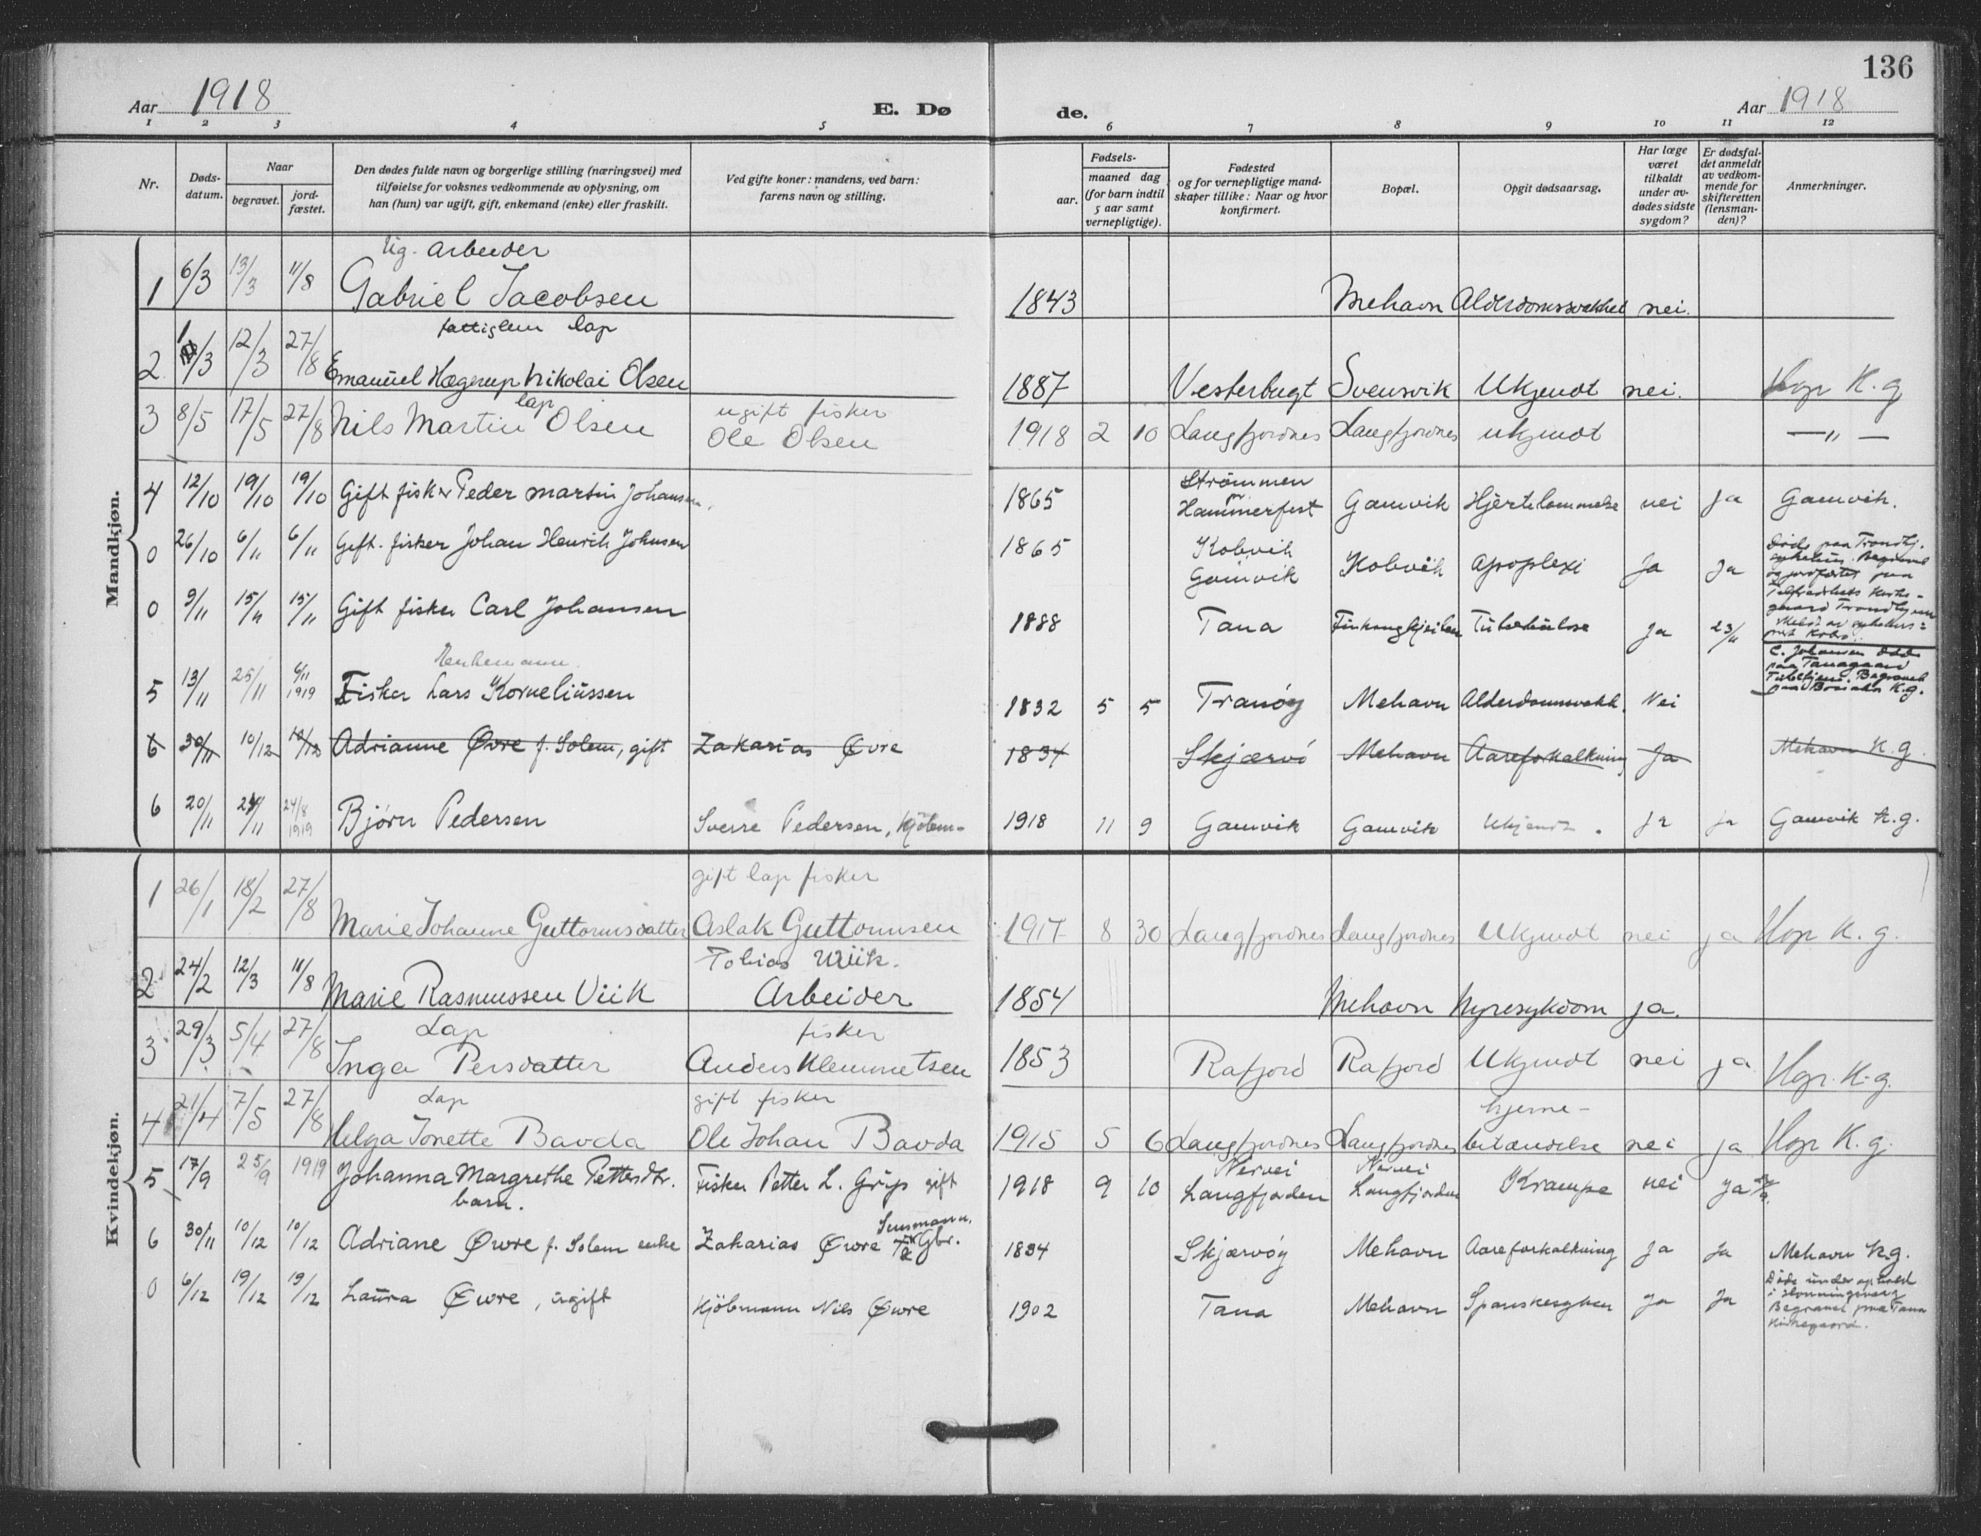 136
Aar 1918 E. Døde. Aar 1918
1 2 3 4 5 6 7 8 9 10 11 12
Nr. Dødsdatum. Naar begravet. jordfæstet. Den dødes fulde navn og borgerlige stilling (næringsvei) med tilføielse for voksnes vedkommende av oplysning, om han (hun) var ugift, gift, enkemand (enke) eller fraskilt. Ved gifte koner: mandens, ved barn: farens navn og stilling. Fødsels- aar. maaned dag (for barn indtil 5 aar samt vernepligtige). Fødested og for vernepligtige mandskaper tillike: Naar og hvor konfirmert. Bopæl. Opgit dødsaarsag. Har læge været tilkaldt under avdødes sidste sygdom? Er dødsfaldet anmeldt av vedkommende for skifteretten (lensmanden)? Anmerkninger.
Mandkjøn.
Ug. Arbeider
1 6/3 13/3 11/8 Gabriel Jacobsen 1843 Mehavn Alderdomssvakhet nei.
fattiglem lap
2 /3 12/3 27/8 Emanuel Hægerup Nikolai Olsen 1887 Vesterbugt Svensvik Ukjendt nei. Hop K.g
lap ugift fisker
3 8/5 17/5 27/8 Nils Martin Olsen Ole Olsen 1918 2 10 Langfjordnes Langfjordnes ukjendt — " —
4 12/10 19/10 19/10 Gift fisker Peder Martin Johansen. 1865 Strømmen pr Hammerfest Gamvik Hjertelammelse nei ja Gamvik.
0 26/10 6/11 6/11 Gift. fisker Johan Henrik Johnsen 1865 Kobvik Gamvik Kobvik Apoplexi Ja Ja Døde paa Trondhj. sykehus. Begravet og jordfæstet paa Tilfredshets Kirkegaard Trondhjem
0 9/11 15/11 15/11 Gift fisker Carl Johansen 1888 Tana Finkongkjeilen Tuberkulose Ja 23/11 C. Johansen døde paa Tanagaard Tuberkjem. Begravet paa K.g.
Enkemann.
5 13/11 25/11 6/11 1919 Fisker Lars Korneliussen 1832 5 5 Tranøy Mehavn Alderdomsvakh. Nei
6 30/11 10/12 10/12 Adrianne Øvre f. Solem, gift Zakarias Øvre 1834 Skjærvö Mehavn Aareforkalkning Ja Mehavn K.g.
6 20/11 24/11 24/8 1919 Bjørn Pedersen Sverre Pedersen, Kjöbm- 1918 11 9 Gamvik Gamvik Ukjendt. ja ja Gamvik K.g.
Kvindekjøn.
gift lap fisker
1 26/1 18/2 27/8 Marie Johanne Guttormsdatter Aslak Guttormsen 1917 8 30 Langfjordnes Langfjordnes Ukjendt nei ja Hop K.g.
Tobias Wiik.
2 24/2 12/3 11/8 Marie Rasmussen Viik Arbeider 1854 Mehavn Nyresykdom ja.
Lap fisker
3 29/3 5/4 27/8 Inga Persdatter Anders Klemmetsen 1853 Rafjord Rafjord Ukjendt nei ja Hop. K.g.
Lap gift fisker hjerne-
4 21/4 7/5 27/8 Helga Jonette Bavda Ole Johan Bavda 1915 5 6 Langfjordnes Langfjordnes betændelse nei ja Hop K.g.
5 17/9 25/9 1919 Johanna Margrethe Pettersdtr. barn. Fisker Petter L. Grip gift 1918 9 10 Nervei Langfjorden Nervei Langfjorden Krampe nei ja
6 30/11 10/12 10/12 Adriane Øvre f. Solem enke Zakarias Øvre Gbr. 1834 Skjærvöy Mehavn Aareforkalkning Ja Ja Mehavn K.g.
0 6/12 19/12 19/12 Laura Øvre, ugift Kjöbmann Nils Øvre 1902 Tana Mehavn Spanskesyken Ja Ja Døde under ophold i Honningsvaag Begravet paa Tana Kirkegaard.